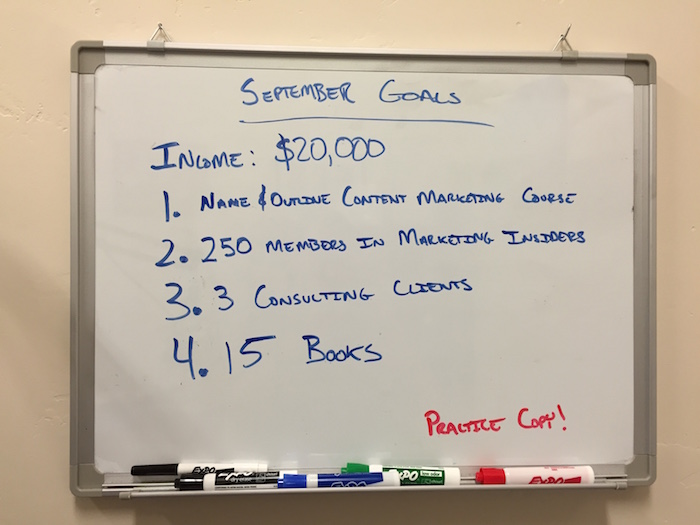 September Goals
Income: $20,000
1. Name & Outline Content Marketing Course
2. 250 members in Marketing Insiders
3. 3 Consulting Clients
4. 15 Books
Practice Copy!
EXPO
EXPO
EXPO low odor
EXPO